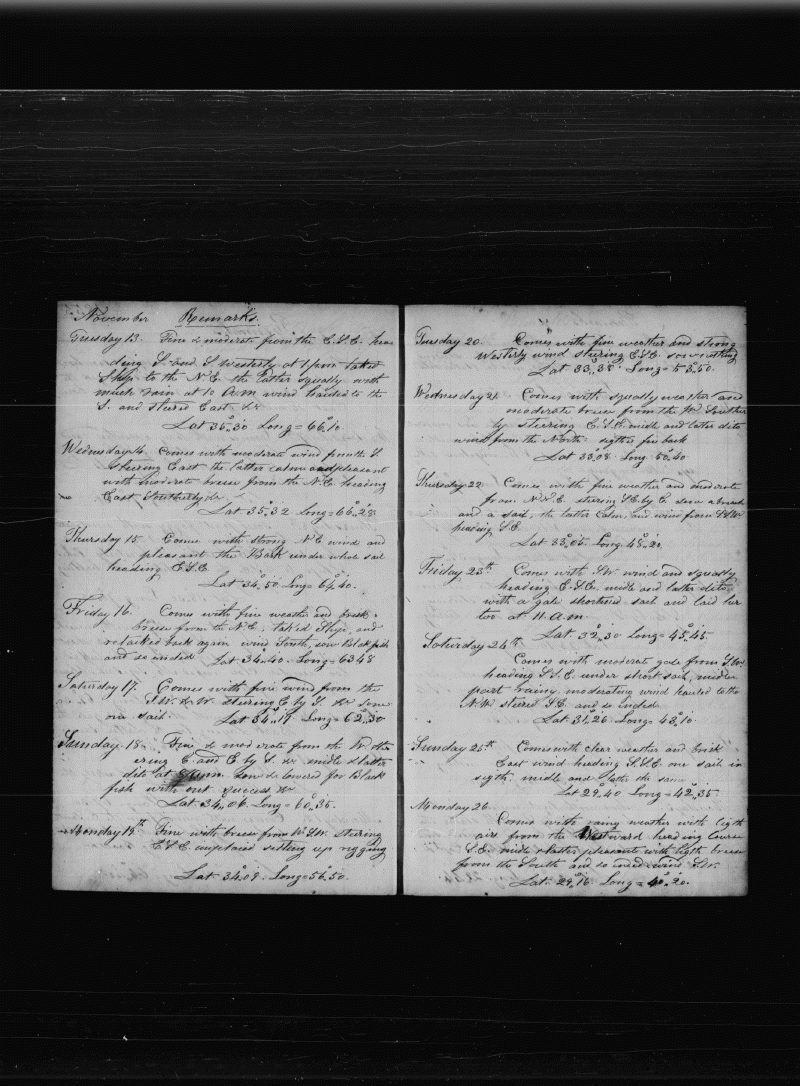 November Remarks.
Tuesday 13. Fine & moderate from the E.S.E. hea
ding S. and S Westerly at 1 pm taked
Ship to the N.E. the latter squally with
much rain at 10 A.M. wind hauled to the
S. and stered East &c
Lat 35°.30 Long = 66°.10.
Wednesday 14 Comes with moderate wind from the S
steering East the latter calm and pleasant
with moderate breeze from the N.E. heading
East Southerly &c.
Lat 35°.32 Long = 66°.28
Thursday 15. Comes with strong N.E wind and
pleasant the Bark under whole sail
heading E.S.E
Lat 34°.50. Long = 64°.40.
Friday 16. Comes with fine weather and brisk
breese from the N.E. taked Ship, and
retacked back again wind South, saw Blackfish
and so ended. Lat 34.40. Long = 63 48
Saturday 17. Comes with fine wind from the
S.W. & W. steering E by S. &c
one sail. Lat 34°.19 Long = 62°.30
Sunday. 18. Fine & moderate from the W.
ering E. and E by S. &c middle & latter
dito at saw & lowered for Black
fish with out success &c
Lat 34°.06. Long = 60°.35.
Monday 19th Fine with breese from W.S.W. steering
E.S.E. employed setting up rigging
Lat 34°.09. Long = 56°.50.
Tuesday 20. Comes with fine weather and strong
Westerly wind steering E.S.E. saw nothing
Lat 33°.38. Long = 53°.50.
Wednesday 21. Comes with squally weather and
moderate breese from the W. Souther
ly steering E.S.E. midle and latter dito
wind from the North. sigth a fin back
Lat 33°.08. Long 50°.40
Thursday 22. Comes with fine weather and moderate
from N.N.E. stering S.E. by E. saw a
and a sail, the latter Calm, and wind from S.S.W.
heading S.E.
Lat 33°.05. Long. 48°.20
Friday 23th Comes with S.W. wind and squally
heading E.S.E. midle and latter dito
with a gale shortened sail and laid her
too at 11. A.M.
Lat 32°.30 Long = 45°.45
Saturday 24th.
Comes with moderate gale from S.W.
heading S.S.E. under short sail, middle
part rainy, moderating wind hauled to the
N.W. steerd S.E. and so ended.
Lat 31°.26. Long = 43°.10.
Sunday 25th Comes with clear weather and brisk
East wind heading S.S.E. one sail in
sigth. midle and latter the same
Lat 29°.40 Long = 42°.35
Monday 26
Comes with rainy weather with ligth
airs from the Westward heading Course
S.E. midle & latter pleasant with ligth breese
from the South and so ended wind S.W.
Lat. 29°.16 Long = 40°.20.